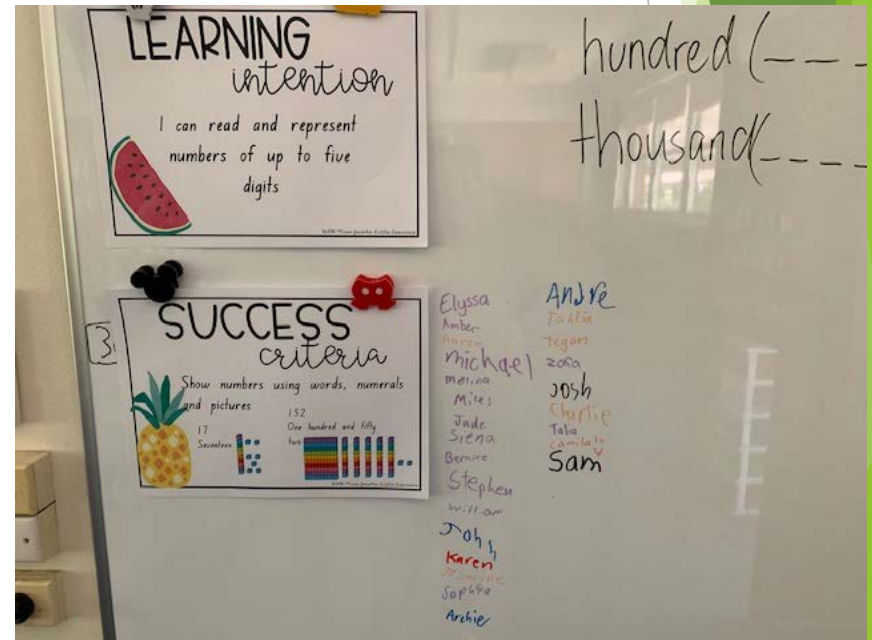 LEARNING
intention
I can read and represent
numbers of up to five
digits
hundred (_ _ _
thousand(_ _ _ _
3
SUCCESS
criteria
Show numbers using words, numerals
and pictures
17
Seventeen
152
One hundred and fifty
two
Elyssa
Amber
Michael
Merina
Miles
Jade
Siena
Bernice
Stephen
William
John
Karen
Jasmine
Sophia
Archie
Andre
Tahlia
Tegan
Zara
Josh
Charlie
Talia
camila
Sam